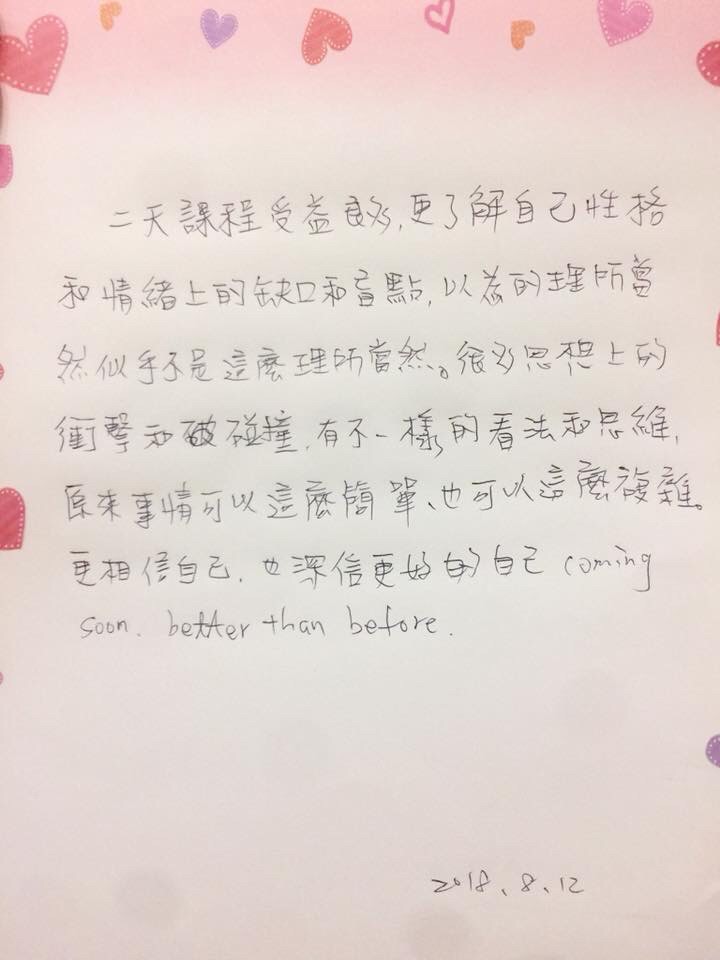 二天課程受益良多,更了解自己性格
和情緒上的缺口和盲點,以為的理所當
然似乎不是這麼理所當然。很多思想上的
衝擊和破碰撞,有不一樣的看法和思維,
原來事情可以這麼簡單、也可以這麼複雜。
更相信自己,也深信更好的自己 coming
soon. better than before.
2018.8.12